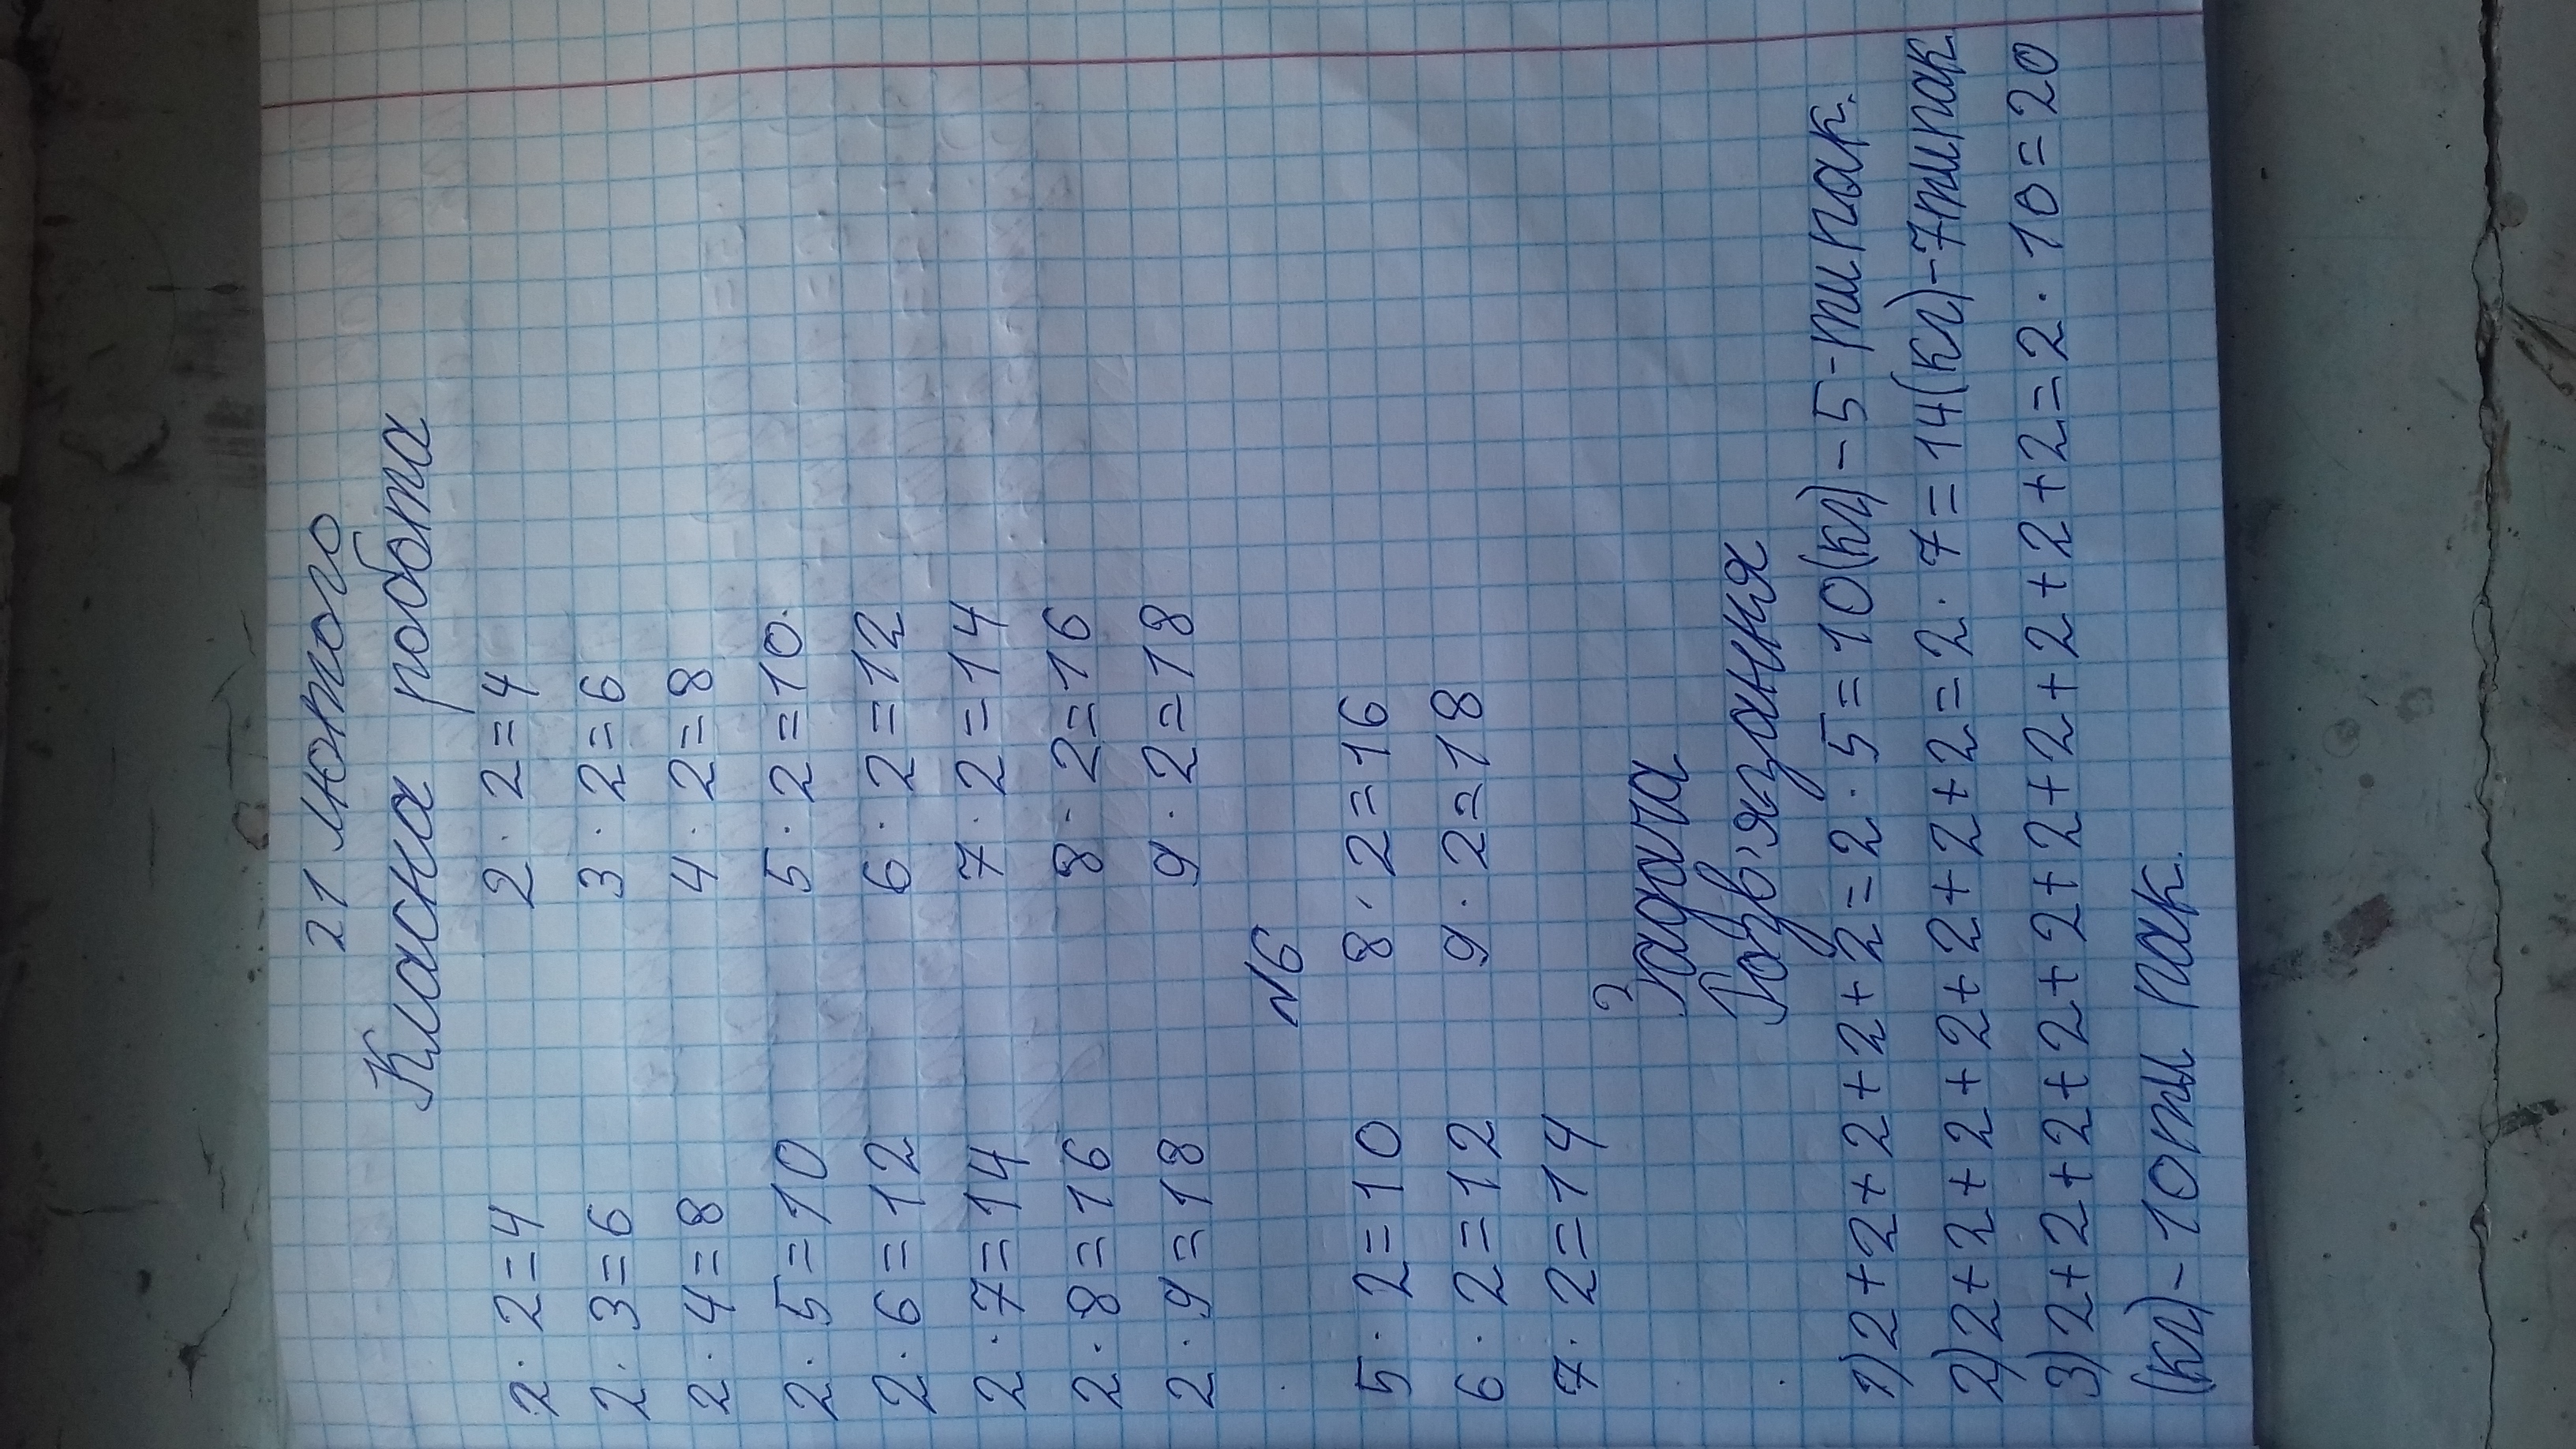 21 лютого
Класна робота
2·2=4 2·2=4
2·3=6 3·2=6
2·4=8 4·2=8
2·5=10 5·2=10.
2·6=12 6·2=12
2·7=14 7·2=14
2·8=16 8·2=16
2·9=18 9·2=18
№6
5·2=10 8·2=16
6·2=12 9·2=18
7·2=14
Задача
Розв'язання
1)2+2+2+2+2=2·5=10(кг)-5-ти пак.
2)2+2+2+2+2+2+2=2·7=14(кг)-7ти пак
3)2+2+2+2+2+2+2+2+2+2=2·10=20
(кг)-10ти пак.